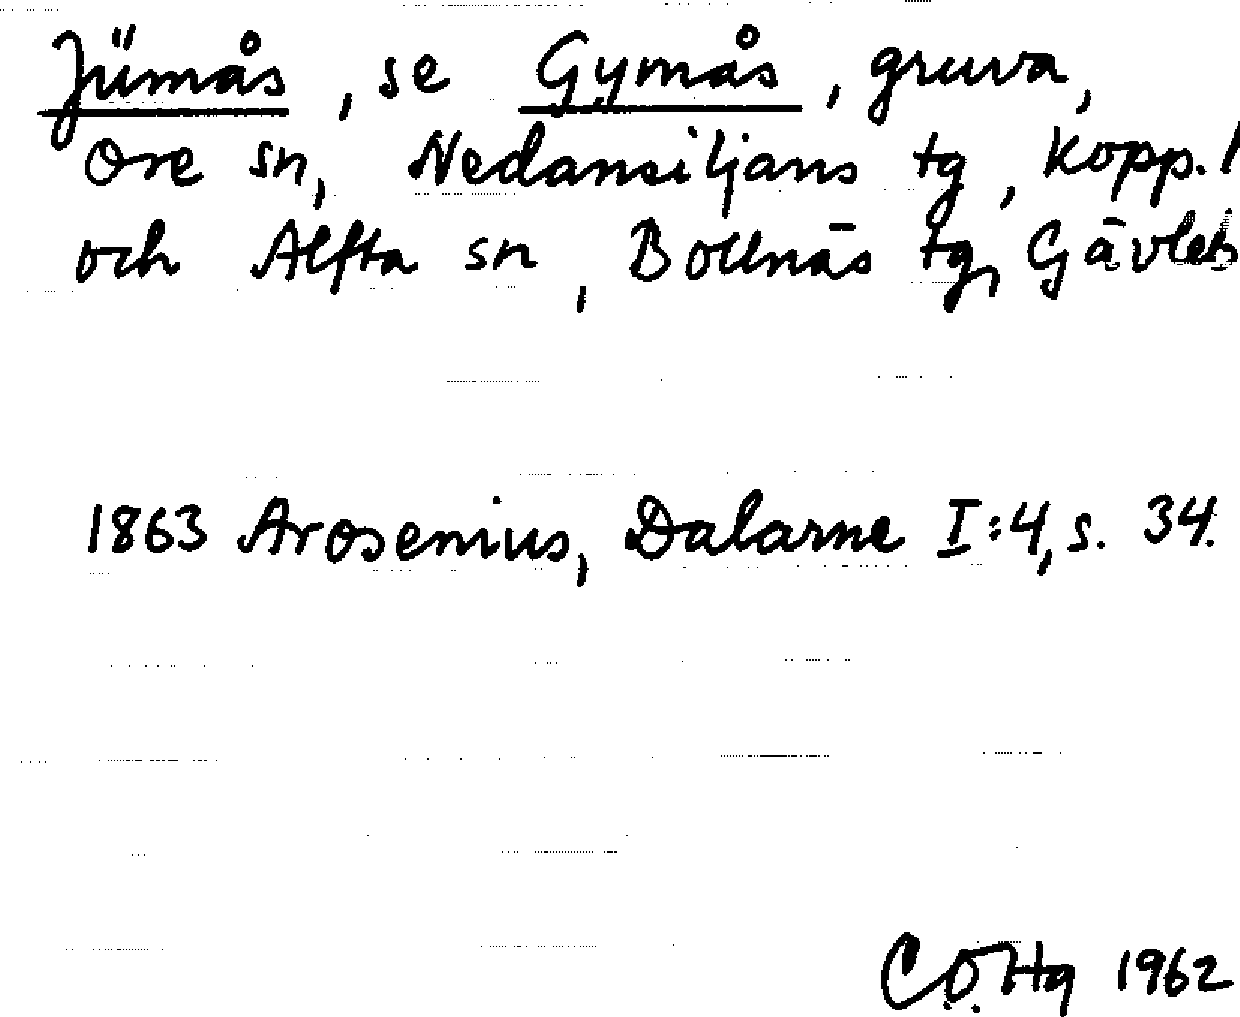 Jümås, se Gymås, gruva,
Ore sn, Nedansiljans tg, Kopp. l
och Alfta sn, Bollnäs tg, Gävleb
1863 Arosenius, Dalarne I:4, s. 34.
C.O.Hg 1962